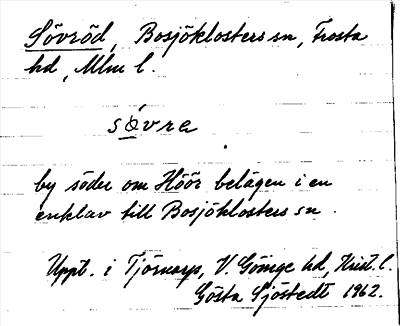 Sövröd, Bosjöklosters sn, Frosta
hd, Mlm l.
sǿvra
by söder om Höör belägen i en
enklav till Bosjöklosters sn.
Uppt. i Tjörnarp, V. Göinge hd, Krist. l.
Gösta Sjöstedt 1962.